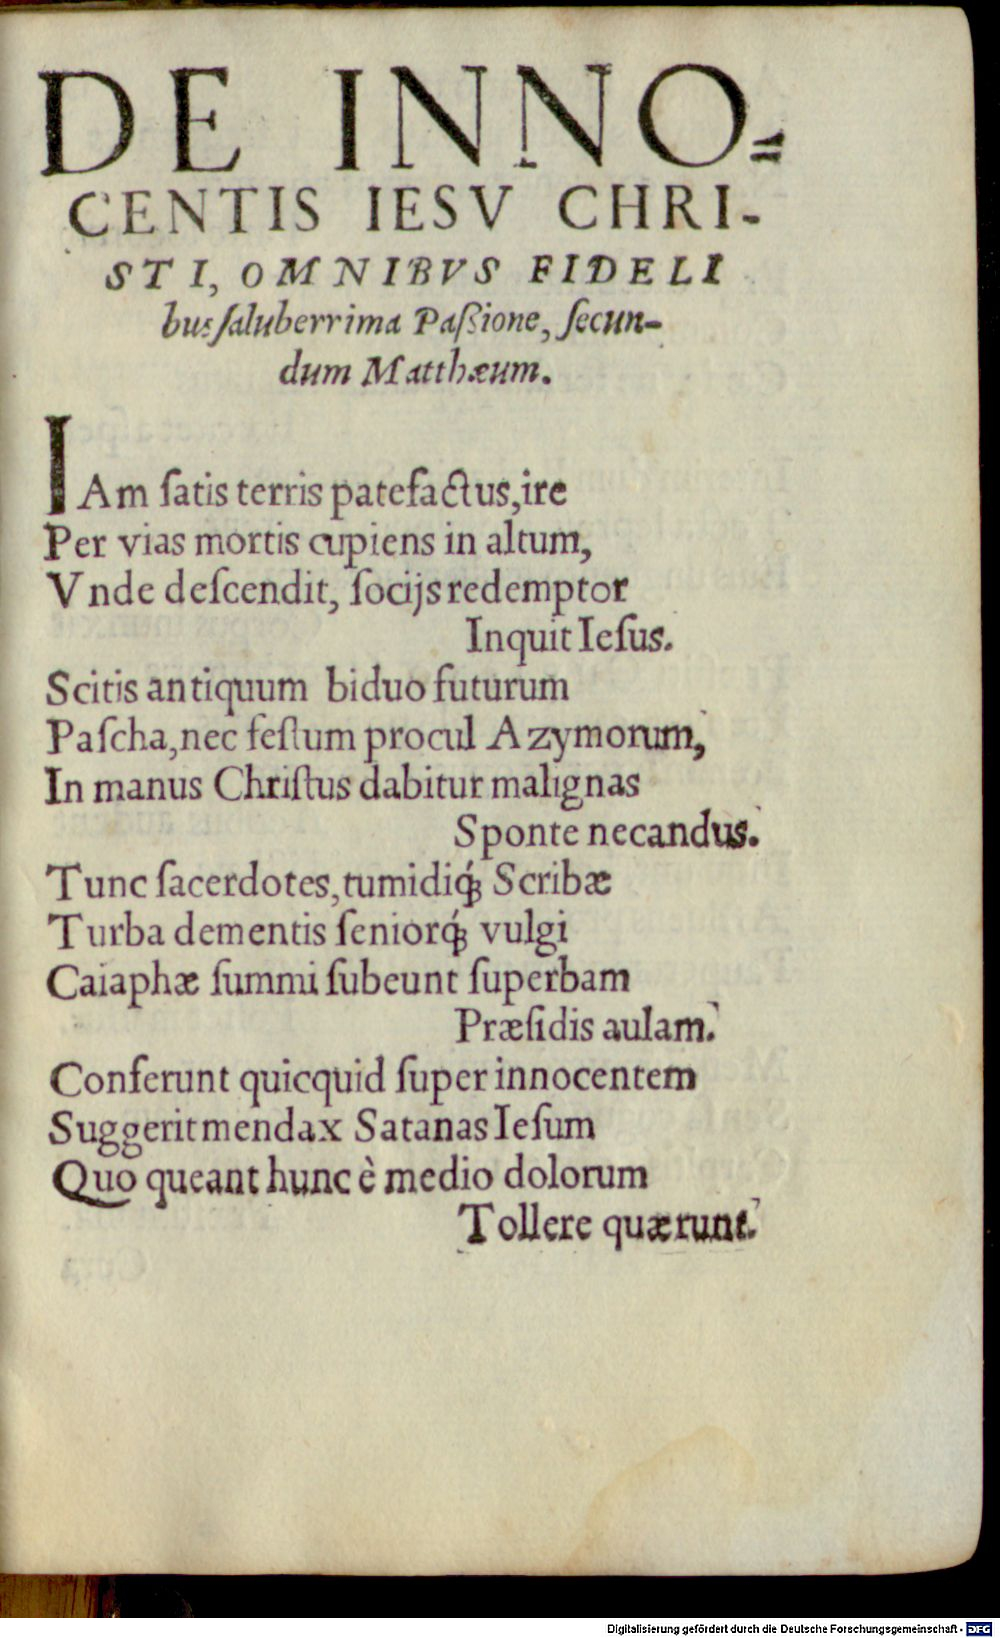 DE INNO=
CENTIS IESV CHRI-
STI, OMNIBVS FIDELI
bus ſaluberrima Paßione, ſecun-
dum Matthæum.
IAm ſatis terris patefactus, ire
Per vias mortis cupiens in altum,
Vnde deſcendit, ſocijs redemptor
Inquit Ieſus.
Scitis antiquum biduo futurum
Paſcha, nec feſtum procul Azymorum,
In manus Chriſtus dabitur malignas
Sponte necandus.
Tunc ſacerdotes, tumidiq́ꝫ Scribæ
Turba dementis ſeniorq́ꝫ vulgi
Caiaphæ ſummi ſubeunt ſuperbam
Præſidis aulam.
Conferunt quicquid ſuper innocentem
Suggerit mendax Satanas Ieſum
Quo queant hunc è medio dolorum
Tollere quærunt.
Digitalisierung gefördert durch die Deutsche Forschungsgemeinschaft - DFG